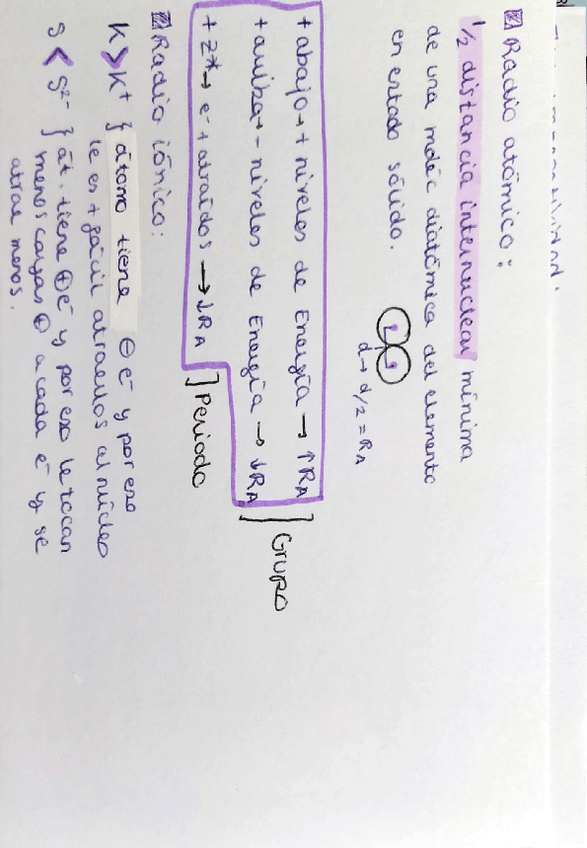 Radio atómico:
1/2 distancia internuclear mínima
de una moléc diatómica del elemento
en estado sólido.
d→ d/2 = RA
+ abajo → + niveles de Energía → ↑RA
+ arriba → - niveles de Energía → ↓RA
] Grupo
+ Z* → e⁻ + atraídos → ↓RA
] Periodo
Radio iónico:
K > K⁺ } átomo tiene ⊖ e⁻ y por eso
le es + fácil atraerlos al núcleo
S < S²⁻ } át. tiene ⊕ e⁻ y por eso le tocan
menos cargas ⊕ a cada e⁻ y se
atrae menos.